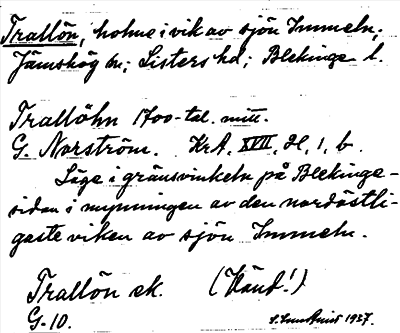 Trallön, holme i vik av sjön Immeln.
Jämshög sn; Listers hd; Blekinge l.
Trallöhn 1700-tal. mitt.
G. Norström. KrA, XVII, H, 1, b.
Läge i gränsvinkeln på Blekinge-
sidan i mynningen av den nordöstli-
gaste viken av sjön Immeln.
Trallön ek. (Känd!)
G-10. 1937.